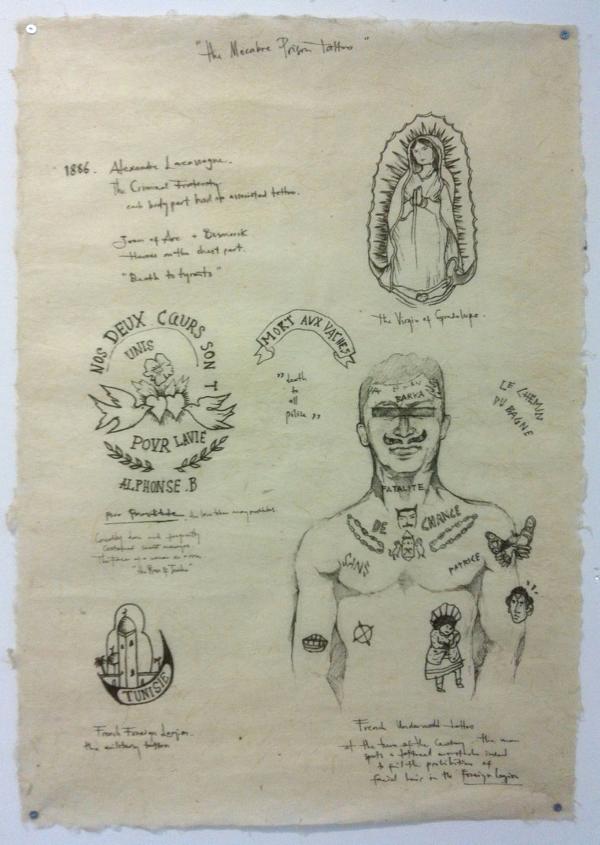 "the Macabre Prison Tattoo"
1886. Alexandre Lacassagne.
The Criminal Fraternity
each body part had an associated tattoo.
Joan of Arc + Bismarck
Heroes on the chest part.
"Death to tyrants"
The Virgin of Guadalupe.
NOS DEUX CŒURS SON T
UNIS
POUR LA VIE
ALPHONSE.B
MORT AUX VACHES
"death
to
all
police"
LE CHEMIN
DU BAGNE
BARKA
FATALITE
DE CHANCE
SANS
PATRICE
For Prostitute
"the Rose of
TUNISIE
French Foreign Legion.
the military tattoo
French Underworld tattoo
at the turn of the Century. The man
sports a tattooed moustache
the prohibition of
facial hair in the Foreign Legion